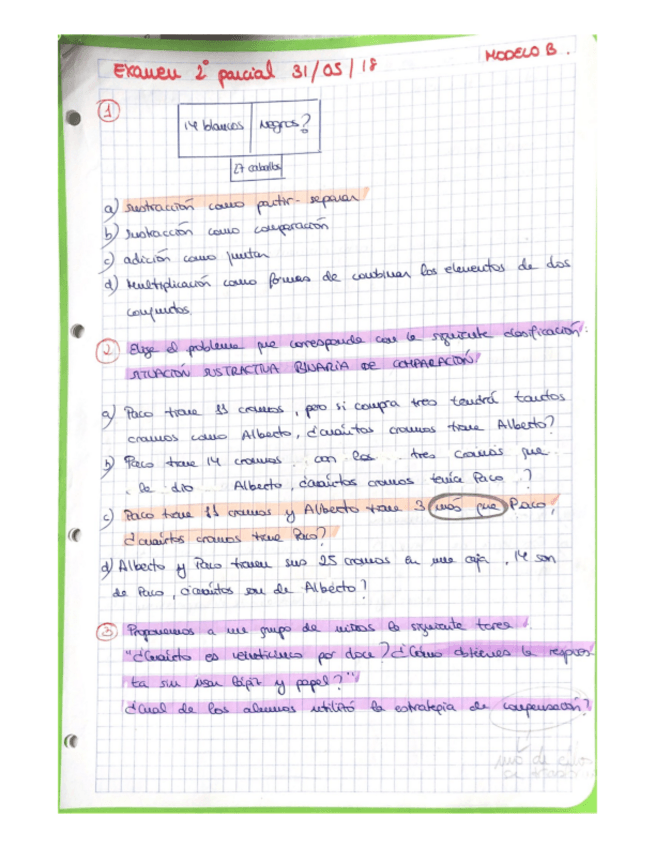 MODELO B.
Examen 2º parcial 31/05/18
1
14 blancos negros?
27 caballos
a) sustracción como partir-separar
b) sustracción como comparación
c) adición como juntar
d) Multiplicación como formas de combinar los elementos de dos
conjuntos.
2 Elige el problema que corresponde con la siguiente clasificación:
SITUACIÓN SUSTRACTIVA BINARIA DE COMPARACIÓN
a) Paco tiene 11 cromos, pero si compra tres tendrá tantos
cromos como Alberto, ¿cuántos cromos tiene Alberto?
b) Paco tiene 14 cromos con los tres cromos que
le dio Alberto, ¿cuántos cromos tenía Paco ?
c) Paco tiene 11 cromos y Alberto tiene 3 más que Paco,
¿cuántos cromos tiene Paco?
d) Alberto y Paco tienen sus 25 cromos en una caja, 14 son
de Paco, ¿cuántos son de Alberto?
3 Proponemos a un grupo de niños la siguiente tarea
"¿Cuánto es veinticinco por doce? ¿Cómo obtienes la respues-
ta sin usar lápiz y papel?"
¿Cual de los alumnos utilizó la estrategia de compensación?